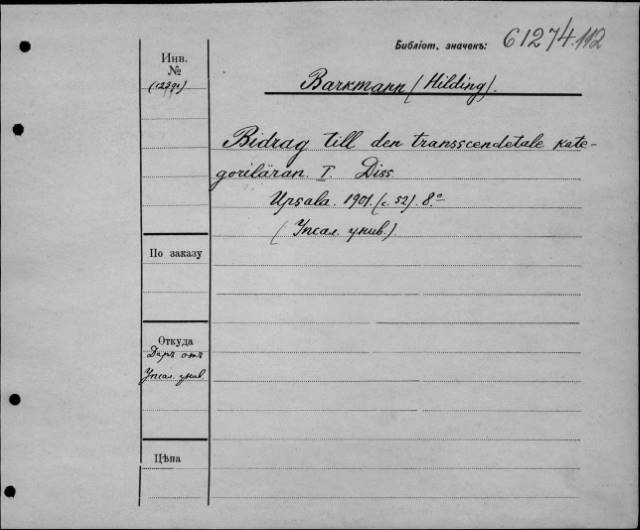 Библіот. значекъ: 61274.112
Инв.
№
(12391)
Barkmann (Hilding).
Bidrag till den transscendetale kate-
goriläran. I. Diss.
Upsala. 1901. (c. 52). 8.°
(Упсал. унив.)
По заказу
Откуда
Даръ отъ
Упсал. унив.
Цѣна